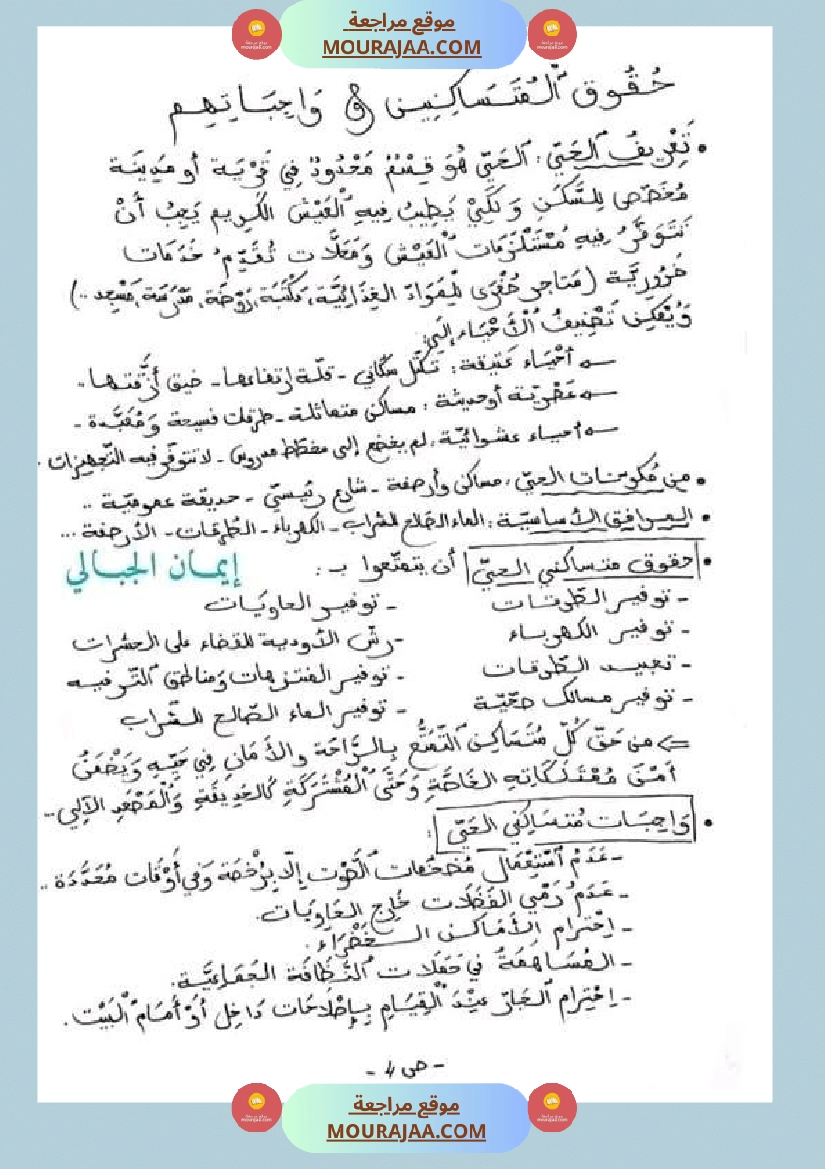 موقع مراجعة
MOURAJAA.COM
حُقُوق الْمُتَسَاكِنِين وَ وَاجِبَاتِهِم
• تَعْرِيفُ الحَيّ : الحَيّ هُوَ قِسْمٌ مَحْدُودٌ فِي قَرْيَة أو مَدِينَة
مُخَصَّص لِلسَّكَنِ وَ لِكَيْ يَطِيبُ فِيهِ الْعَيْشُ الكَرِيم يَجِبُ أَنْ
تَتَوَفَّرَ فِيهِ مُسْتَلْزَمَات الْعَيْش وَمَحَلَّات تُقَدِّم خَدَمَات
ضَرُورِيَّة (مَتَاجِر كُبْرَى لِلْمَوَادّ الغِذَائِيَّة، مَكْتَبَة، رَوْضَة، مَدْرَسَة، مَسْجِد ..)
وَيُمْكِن تَصْنِيفُ الْأَحْيَاء إلى
أَحْيَاء عَتِيقَة : تكتّل سكّاني - قلّة ارتفاعها - ضيق أزقّتها .
عَصْرِيّة أو حديثة : مساكن متماثلة - طرقات فسيحة وَمُعَبَّدة -
أحياء عشوائيّة ، لم يخضع إلى مخطّط مدروس - لا تتوفّر فيه التّجهيزات .
• من مُكوّنات الحيّ : مساكن وأرصفة - شارع رئيسيّ - حديقة عموميّة ..
• المرافق الأساسيّة : الماء الصّالح للشّراب - الكهرباء - الطّرقات - الأرصفة ...
• حقوق متساكني الحيّ أن يتمتّعوا بـ :
إيمان الجبالي
- توفير الطّرقات
- توفير الحاويَات
- توفير الكهرباء
- رشّ الأدوية للقضاء على الحشرات
- تعبيد الطّرقات
- توفير المنتزهات ومناطق التّرفيه
- توفير مسالك صحّيّة
- توفير الماء الصّالح للشّراب
⇐ من حَقّ كُلّ مُتَسَاكِن التَّمَتُّعُ بِالرَّاحَة والأمَان فِي حَيِّهِ وَيَضْمَنُ
أمْنَ مُمْتَلَكَاتِهِ الخَاصَّةِ وَحَتَّى الْمُشْتَرَكَةِ كَالحَدِيقَةِ وَالْمَصْعَدِ الآلِي ..
• وَاجِبَات مُتَسَاكِنِي الحَيّ :
- عَدَمُ اسْتِعْمَال مُضَخِّمَات الصَّوْت إلّا بِرُخْصَة وَفِي أوْقَات مُحَدَّدَة ..
- عَدَمُ رَمْي الفَضَلَات خَارِج الحَاوِيَات .
- اِحْتِرام الأَمَاكِن الخَضْرَاء .
- المُسَاهَمَةُ فِي حَمَلَات النَّظَافَة الجَمَاعِيَّة .
- اِحْتِرام الجَار عِنْدَ الْقِيَامِ بِإصْلَاحَات دَاخِل أَوْ أمَامَ الْبَيْت .
- ص 4 -
موقع مراجعة
MOURAJAA.COM